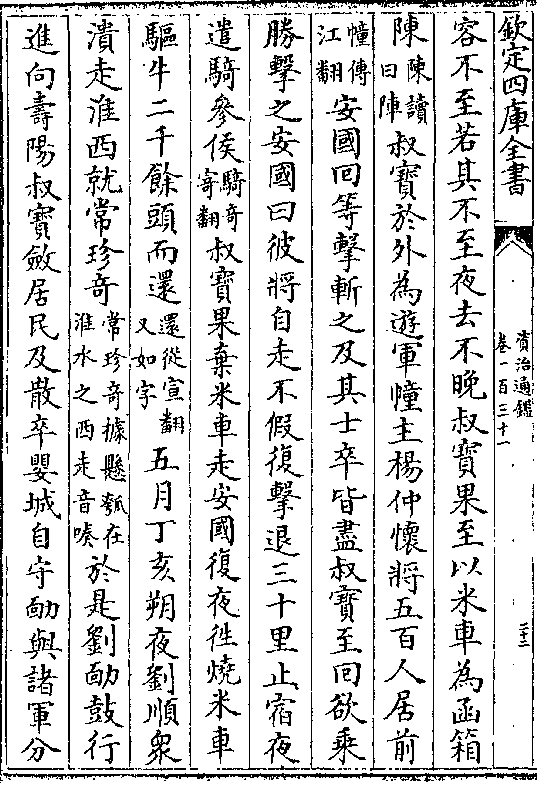 欽定四庫全書
資治通鑑
卷一百三十一
三十二
容不至若其不至夜去不晚叔寶果至以米車為函箱
陳陳讀曰陣叔寶於外為遊軍幢主楊仲懷將五百人居前
幢傳江翻安國回等擊斬之及其士卒皆盡叔寶至回欲乘
勝擊之安國曰彼將自走不假復擊退三十里止宿夜
遣騎參侯騎奇寄翻叔寶果棄米車走安國復夜徃燒米車
驅牛二千餘頭而還還從宣翻又如字五月丁亥朔夜劉順衆
潰走淮西就常珍奇常珍奇據懸瓠在淮水之西走音奏於是劉勔鼓行
進向壽陽叔寶斂居民及散卒嬰城自守勔與諸軍分